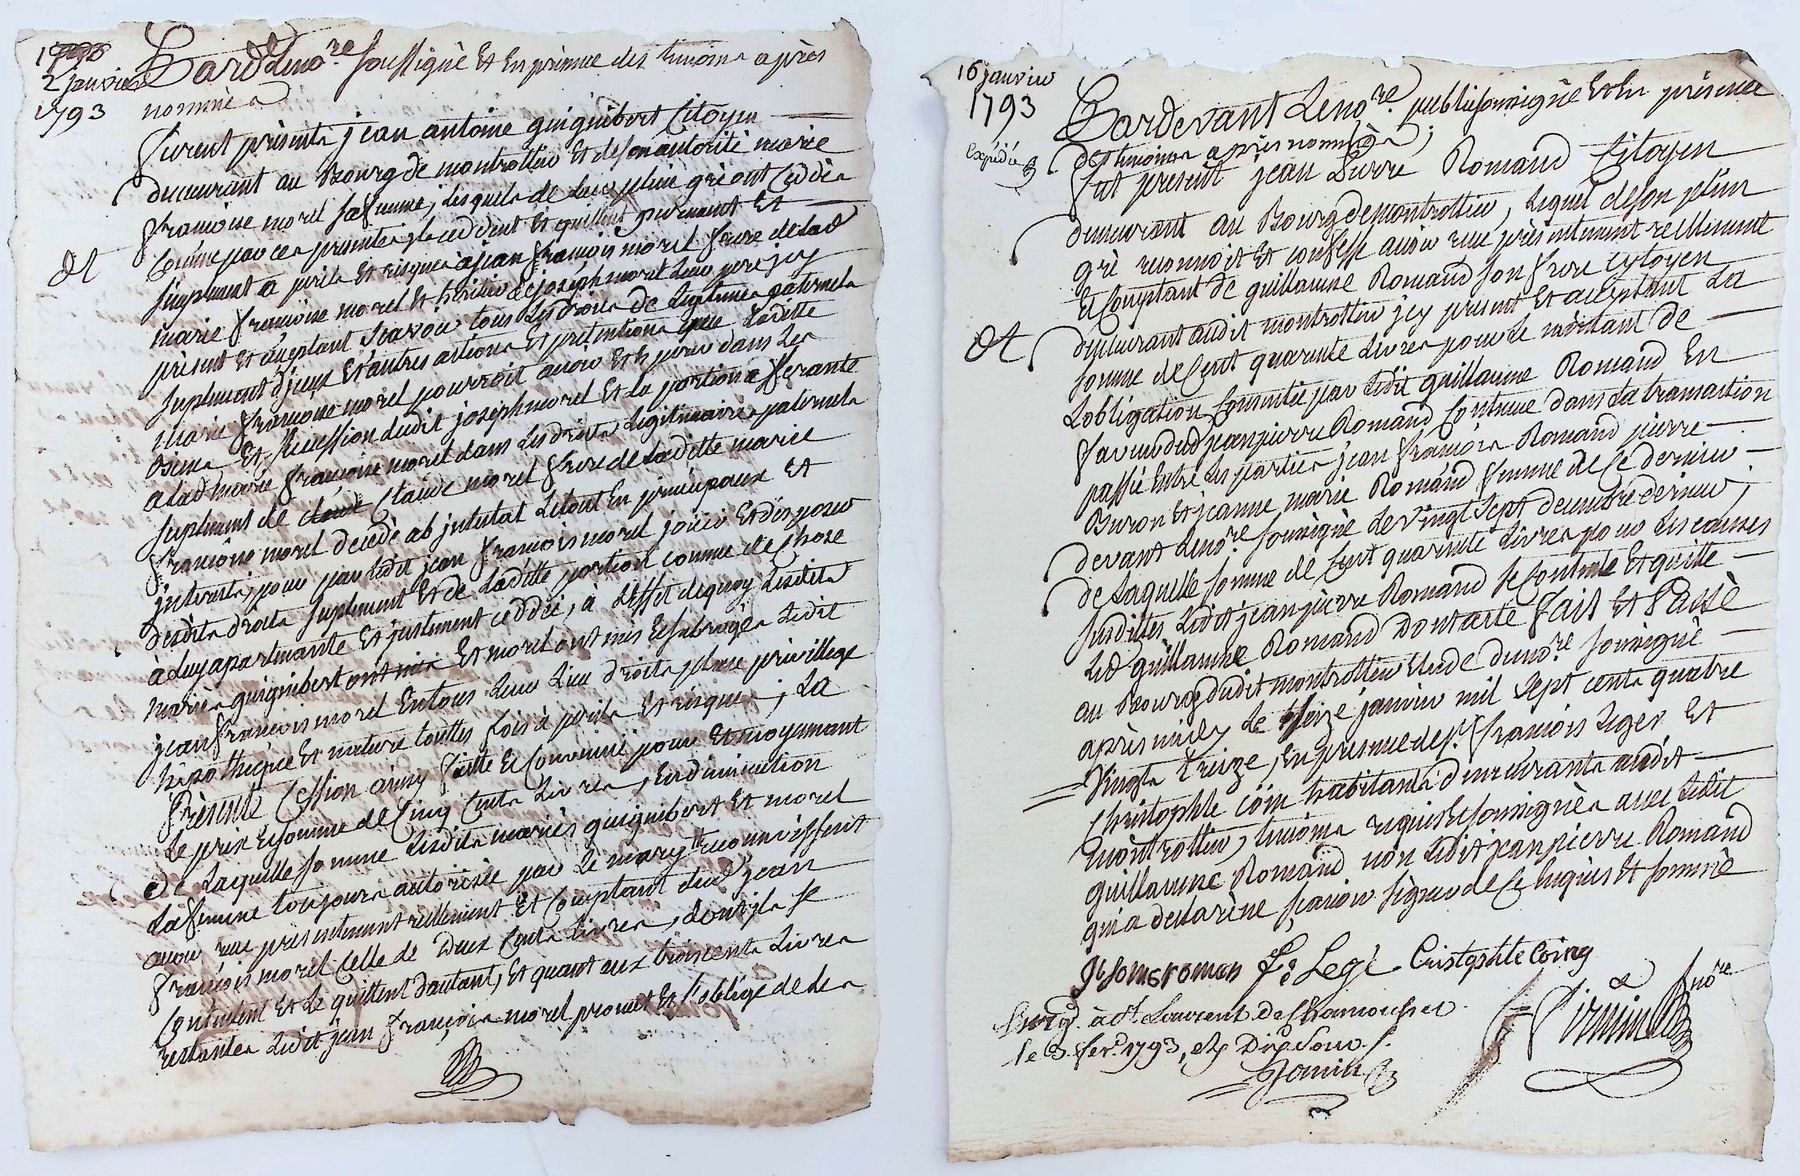 2 janvier
1793
Pardt Lenore soussigné Et En présence des témoins après
nommés
furent présents jean antoine guignibert Citoyen
demeurant au Bourg de montrottier Et de son autorité marie
françoise morel sa femme, lesquels de leur plein gré ont Cédés
Comme par ces présentes ils cèddent Et quittent purement Et
simplement à périls Et risques à jean françois morel frère de lad
marie françoise morel Et héritier de joseph morel leur père jcy
présent Et acceptant sçavoir tous les droits de legitimes paternels
suplement d'jceux Et autres actions Et prétentions que laditte
marie françoise morel pourroit avoir Et espérer dans les
Biens Et succession dudit joseph morel Et la portion afferante
à lad marie françoise morel dans les droits légitimaires paternels
suplement de Claude morel frère de laditte marie
françoise morel décédé ab jntestat le tout En principaux Et
jnterests, pour par ledit jean françois morel jouir Et disposer
desdits droits suplement Et de laditte portion comme de Chose
à luy apartenante Et justement ceddée, à l'effet de quoy lesdits
mariés guignibert Et morel ont mis Et subrogés ledit
jean françois morel En tous leurs lieu droits place privillege
hipothèque Et nature touttes fois à périls Et risques, La
Présente Cession ainsy faitte Et Convenue pour Et moyennant
le prix Et somme de Cinq Cents Livres, En diminution
de laquelle somme lesdits mariés guignibert Et morel
la femme toujours autorisée par le mary reconnoissent
avoir reçu présentement réellement Et Comptant dud jean
françois morel celle de deux Cents livres, dont ils se
Contentent Et le quittent d'autant, Et quant aux trois cents livres
restantes ledit jean françois morel promet Et s'oblige de les
16 janvier
1793
Expédié
Pardevant Lenore public soussigné Et En présence
des témoins après nommés,
fut présent jean Pierre Romand Citoyen
demeurant au Bourg de montrottier, lequel de son plein
gré reconnoit Et confesse avoir reçu présentement réellement
Et Comptant de guillaume Romand son frère Citoyen
demeurant audit montrottier jcy présent Et acceptant la
somme de Cent quarante livres pour le montant de
L'obligation Consentie par ledit guillaume Romand En
faveur dud jean pierre Romand Contenue dans la transaction
passée Entre les parties jean françois Romand pierre
Buron Et jeanne marie Romand femme de ce dernier
devant Lenore soussigné le vingt sept décembre dernier,
de laquelle somme de Cent quarante livres pour les causes
susdittes ledit jean pierre Romand se Contente Et quitte
led guillaume Romand Dont acte Fait Et Passé
au Bourg dudit montrottier Etude dunore soussigné
après midy le seize janvier mil sept cents quatre
vingts treize, En présence de sr françois leger Et
Christophle coin habitants demeurants audit
montrottier, témoins requis Et soussignés avec ledit
guillaume Romand non ledit jean pierre Romand
qui a declaré ne sçavoir signer de ce Enquis Et sommé
Fs Legé Cristophle Coing
Enregt. à St Laurent de Chamousset
le 3 fer. 1793,